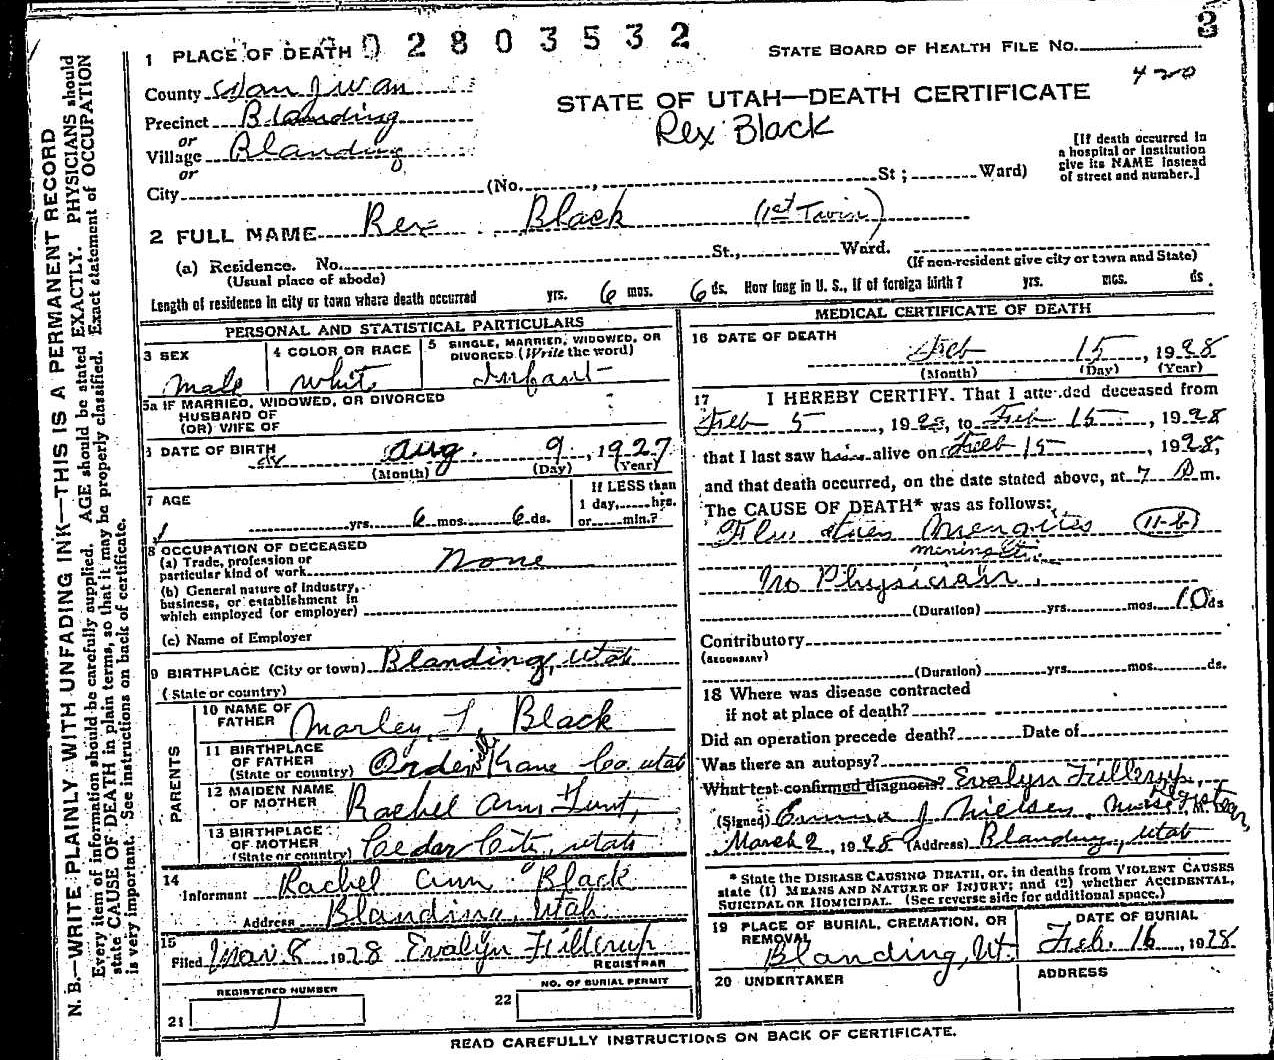 1 PLACE OF DEATH 02803532 STATE BOARD OF HEALTH FILE No. 2
420
County San Juan
STATE OF UTAH—DEATH CERTIFICATE
Precinct Blanding
Rex Black
or
Village Blanding
or
[If death occurred in
a hospital or institution
give its NAME instead
of street and number.]
City (No. , St ; Ward)
2 FULL NAME Rex Black (1st Twin)
(a) Residence. No. St., Ward.
(Usual place of abode) (If non-resident give city or town and State)
Length of residence in city or town where death occurred yrs. 6 mos. 6 ds. How long in U. S., if of foreign birth? yrs. mos. ds.
PERSONAL AND STATISTICAL PARTICULARS
3 SEX
Male
4 COLOR OR RACE
White
5 SINGLE, MARRIED, WIDOWED, OR
DIVORCED (Write the word)
Infant
5a IF MARRIED, WIDOWED, OR DIVORCED
HUSBAND OF
(OR) WIFE OF
DATE OF BIRTH Aug. 9, 1927
(Month) (Day) (Year)
7 AGE
yrs. 6 mos. 6 ds.
If LESS than
1 day, hrs.
or min.?
8 OCCUPATION OF DECEASED
(a) Trade, profession or
particular kind of work None
(b) General nature of industry,
business, or establishment in
which employed (or employer)
(c) Name of Employer
9 BIRTHPLACE (City or town) Blanding, Utah
(State or country)
PARENTS
10 NAME OF
FATHER Marley L. Black
11 BIRTHPLACE
OF FATHER
(State or country) Orderville Kane Co. Utah
12 MAIDEN NAME
OF MOTHER Rachel Ann
13 BIRTHPLACE
OF MOTHER
(State or country) Cedar City, Utah
14
Informant Rachel Ann Black
Address Blanding, Utah
15
Filed Mar. 8 1928 Evalyn Fillerup
REGISTRAR
REGISTERED NUMBER
21 1
NO. OF BURIAL PERMIT
22
MEDICAL CERTIFICATE OF DEATH
16 DATE OF DEATH
Feb 15, 1928
(Month) (Day) (Year)
17 I HEREBY CERTIFY. That I attended deceased from
Feb 5, 1928, to Feb 15, 1928
that I last saw him alive on Feb 15, 1928,
and that death occurred, on the date stated above, at 7 m.
The CAUSE OF DEATH* was as follows:
Flu (11-b)
No Physician.
(Duration) yrs. mos. 10 ds
Contributory
(SECONDARY)
(Duration) yrs. mos. ds.
18 Where was disease contracted
if not at place of death?
Did an operation precede death? Date of
Was there an autopsy?
What test confirmed diagnosis? Evalyn Fillerup,
(Signed) Emma J Nielsen, Nurse
March 2, 1928 (Address) Blanding, Utah
* State the DISEASE CAUSING DEATH, or, in deaths from VIOLENT CAUSES
state (1) MEANS AND NATURE OF INJURY; and (2) whether ACCIDENTAL,
SUICIDAL OR HOMICIDAL. (See reverse side for additional space.)
19 PLACE OF BURIAL, CREMATION, OR
REMOVAL
Blanding, Ut.
DATE OF BURIAL
Feb. 16, 1928
20 UNDERTAKER
ADDRESS
READ CAREFULLY INSTRUCTIONS ON BACK OF CERTIFICATE.
N. B.—WRITE PLAINLY WITH UNFADING INK—THIS IS A PERMANENT RECORD
Every item of information should be carefully supplied. AGE should be stated EXACTLY. PHYSICIANS should
state CAUSE OF DEATH in plain terms, so that it may be properly classified. Exact statement of OCCUPATION
is very important. See instructions on back of certificate.